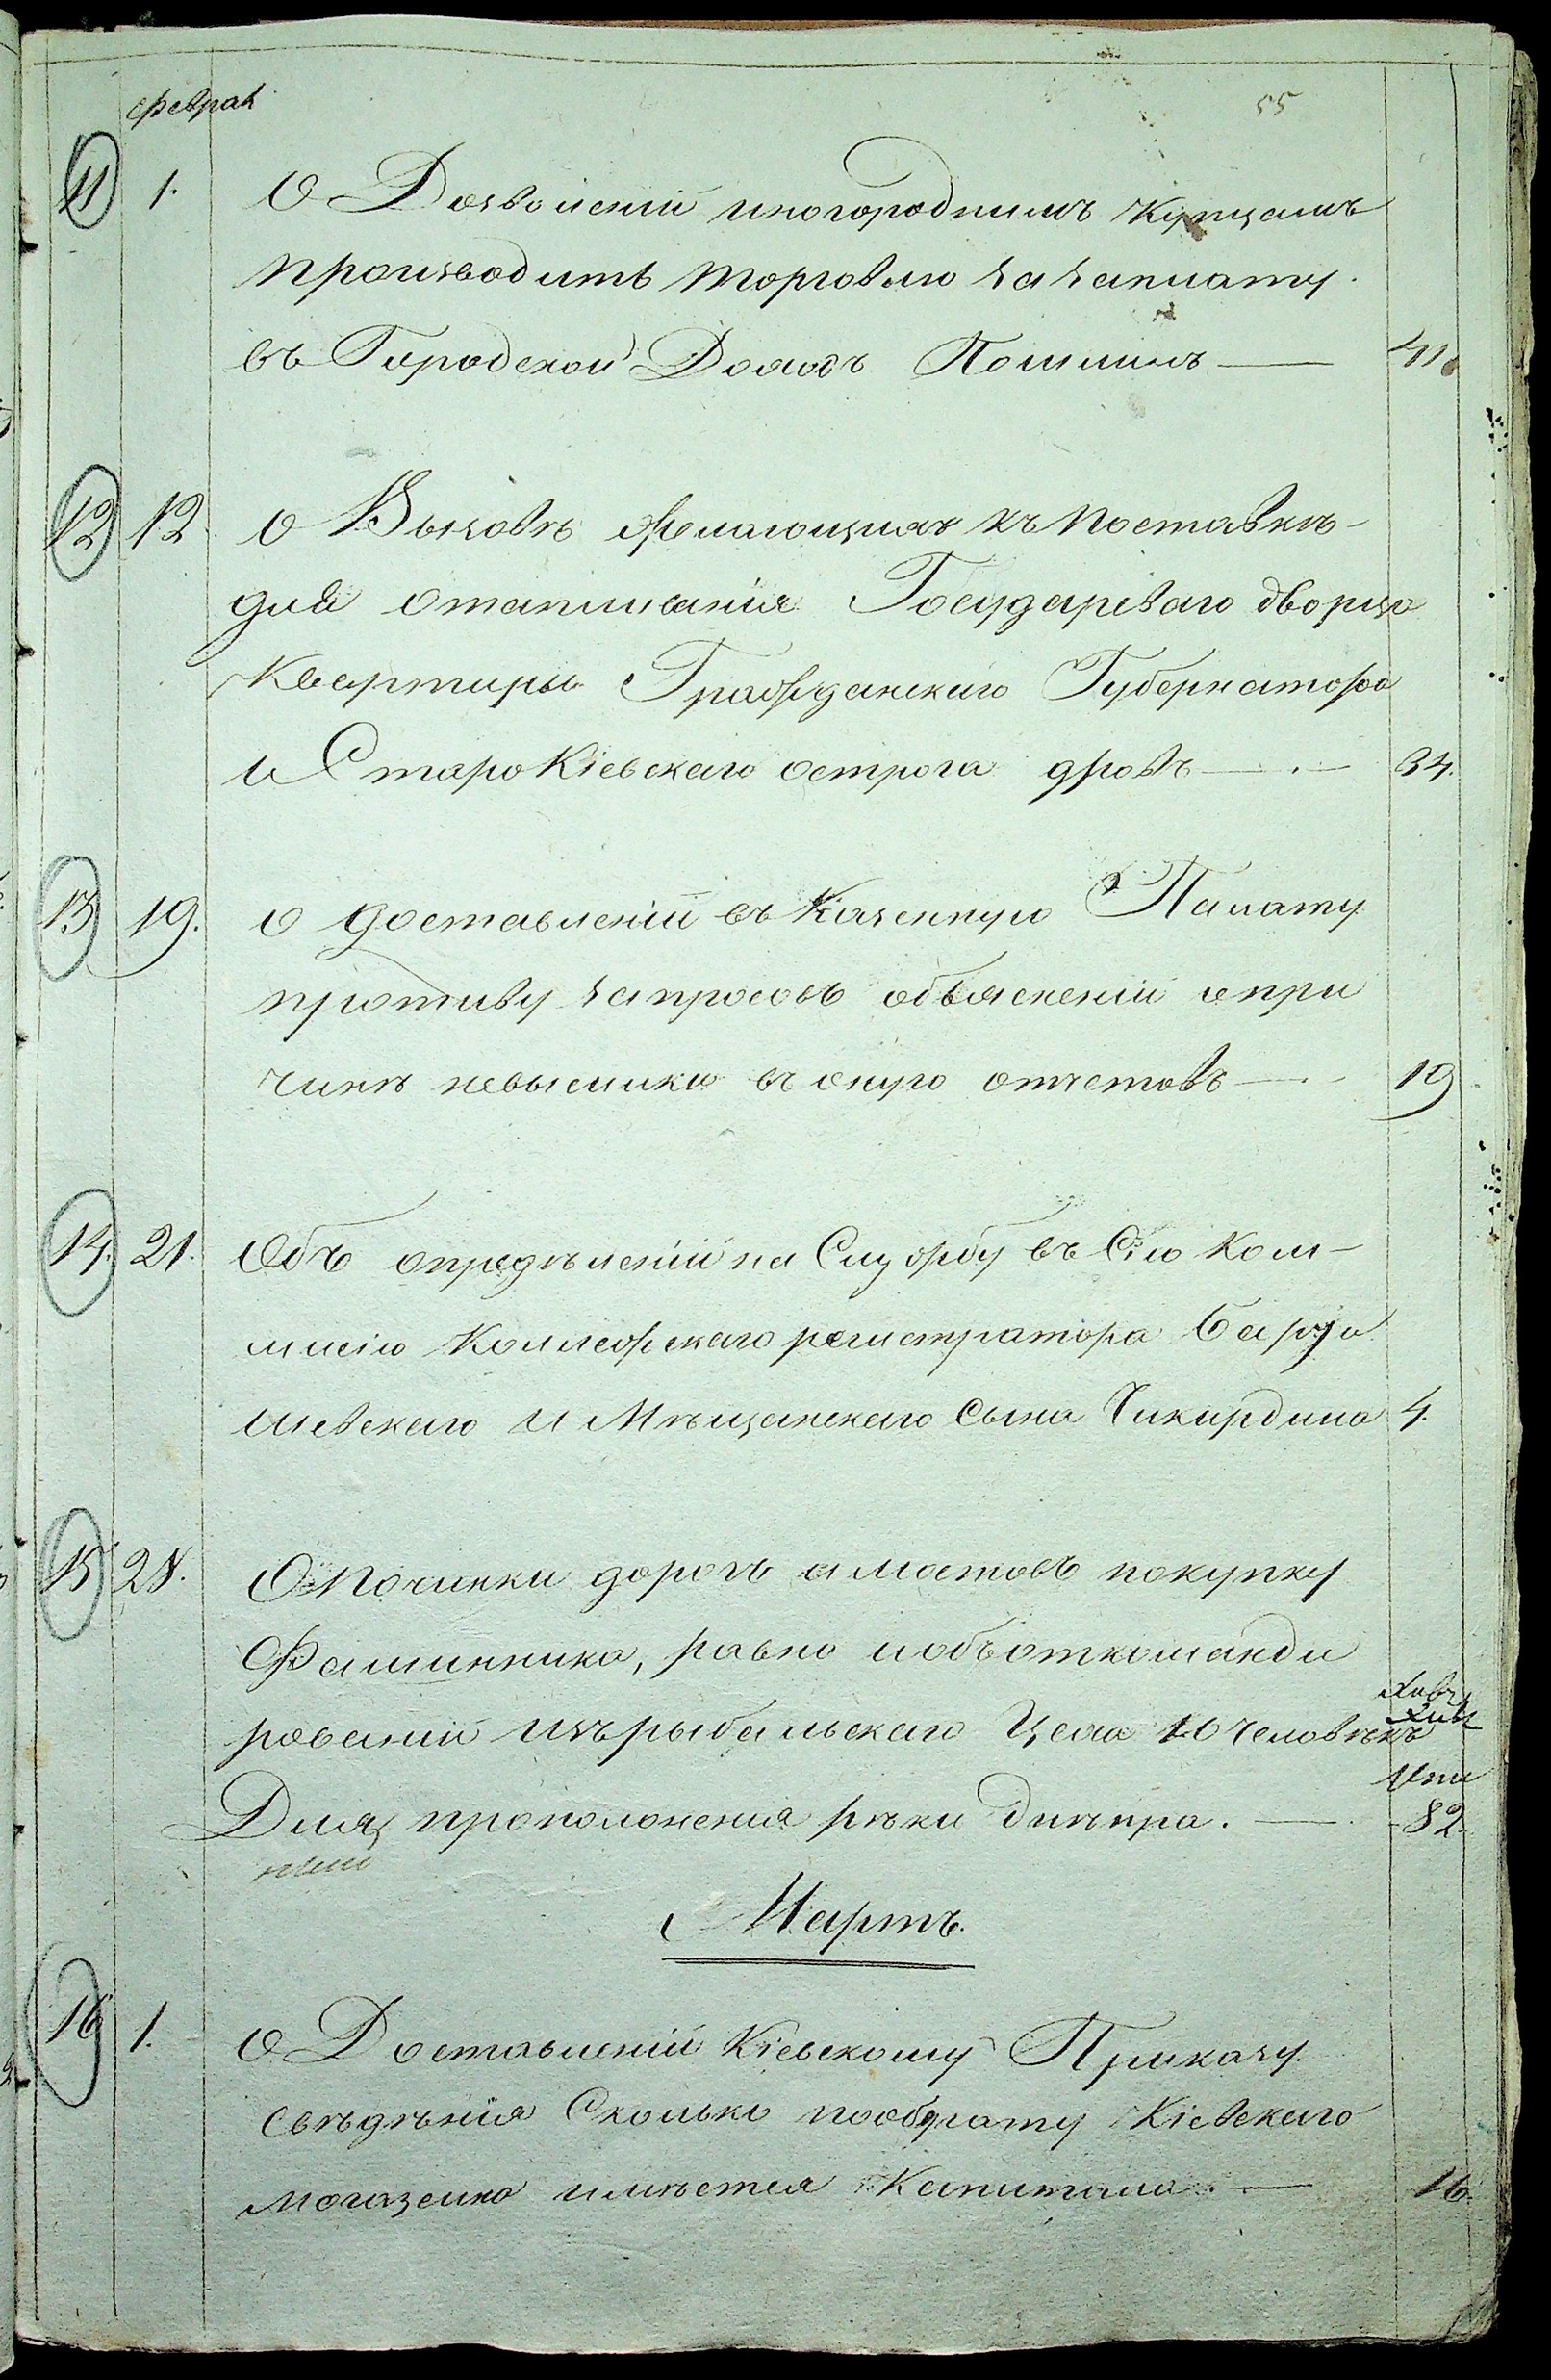 Феврал
55
11 1. О Дозволеніи иногороднимъ Купцамъ
производить торговлю за заплату
въ Городской Доходъ Пошлинъ — 41
12 12 о Вызовѣ желающихъ къ поставкѣ
для отапливанія Государеваго дворца
Квартиры Гражданскаго Губернатора
и СтароКіевскаго острога дровъ — 34.
13 19. о доставленіи въ Казенную Палату
противу запросовъ объясненіи о при
чинѣ невысылки въ оную отчетовъ — 19
14. 21. Объ опредѣленіи на Службу въ Сію Ком-
мисію Коллежскаго регистратора
шевскаго и Мѣщанскаго сына Чикирдина 4.
15 28. О Починки дорогъ и мостовъ покупку
Фашинника, равно и объ откоманди
рованіи изъ рыбальскаго Цеха 10 человѣкъ
Для прополонения рѣки днѣпра. — 82
Мартъ.
16 1. О Доставленіи Кіевскому Приказу
Свѣдѣнія Сколько по обряту Кіевскаго
могазеина имѣется Капитала. — 16.